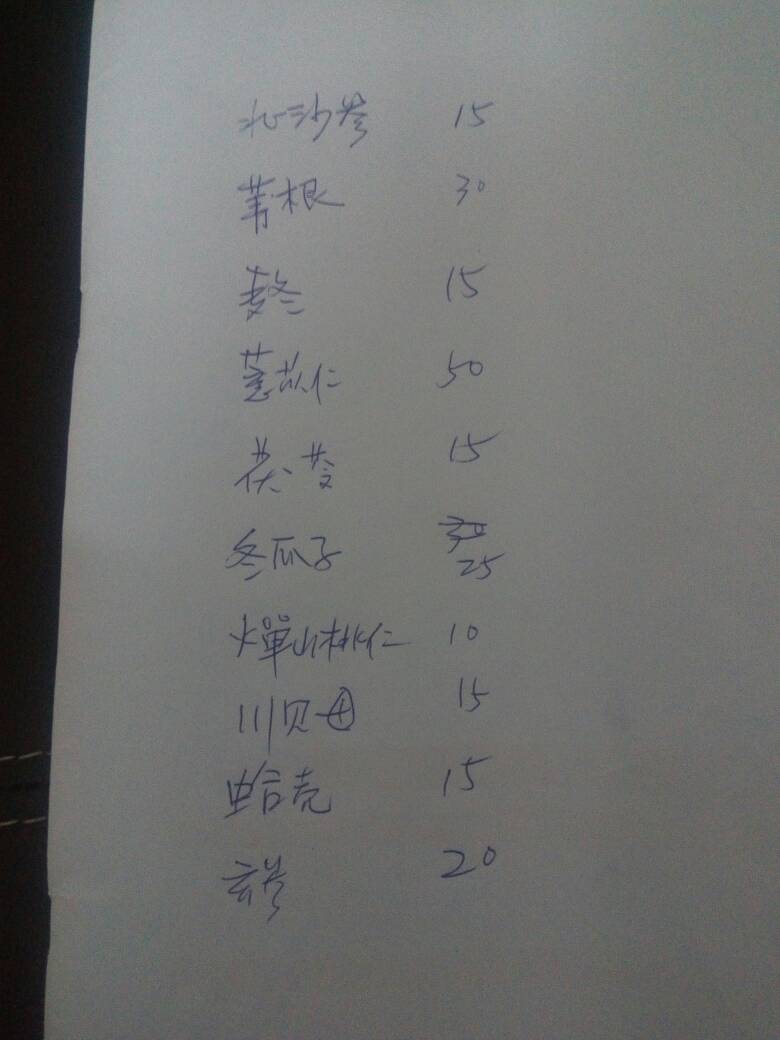 北沙参 15
苇根 30
麦冬 15
薏苡仁 50
茯苓 15
冬瓜子 30
25
燀山桃仁 10
川贝母 15
蛤壳 15
玄参 20